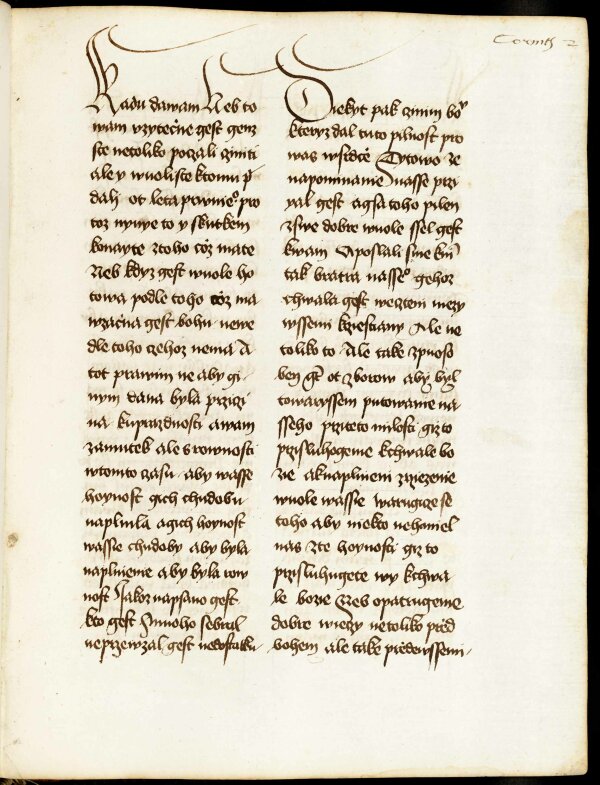 Corinth 2
Radu dawam Neb to
wam vzytečne gest genz
ste netoliko poczali cziniti
ale y wuoli ste k tomu przi
dali ot leta prwnieho pro
toz nynye to y skutkem
konayte z toho coz mate
Neb kdyz gest wuole ho
towa podle toho coz ma
wzačna gest bohu newe
dle toho czehoz nema A
tot prawim ne aby gi
nym dana byla przizi
na kuprazdnosti a wam
zamutek ale s rownosti
w tomto czasu aby wasse
hoynost gich chudobu
naplnila a gich hoynost
wassie chudoby aby byla
naplnienie aby byla row
nost Jakoz napsano gest
kto gest mnoho sebral
neprzewzal gest nedostatku
Diekyt pak czinim bohu
kteryz dal tuto pilnost pro
was w srdcě Tytowo ze
napominanie wasse przi
yal gest a gsa toho pilen
z swe dobre wuole ssel gest
k wam A poslali sme s nim
tak bratra nasseho gehoz
chwala gest we cztem mezy
wssemi krzestiany Ale ne
toliko to Ale take zpuoso
ben gest ot zborow aby byl
towaryssem putowanie na
sseho przi teto milosti giz to
przisluhogeme k chwale bo
zie a k naplnieni zrziezenie
wuole wassie warugicze se
toho aby niekto nehaniel
nas z te hoynosti giz to
przisluhugete wy k chwa
le bozie Neb opatrugeme
dobre wieczy netoliko przed
bohem ale take przede wssemi